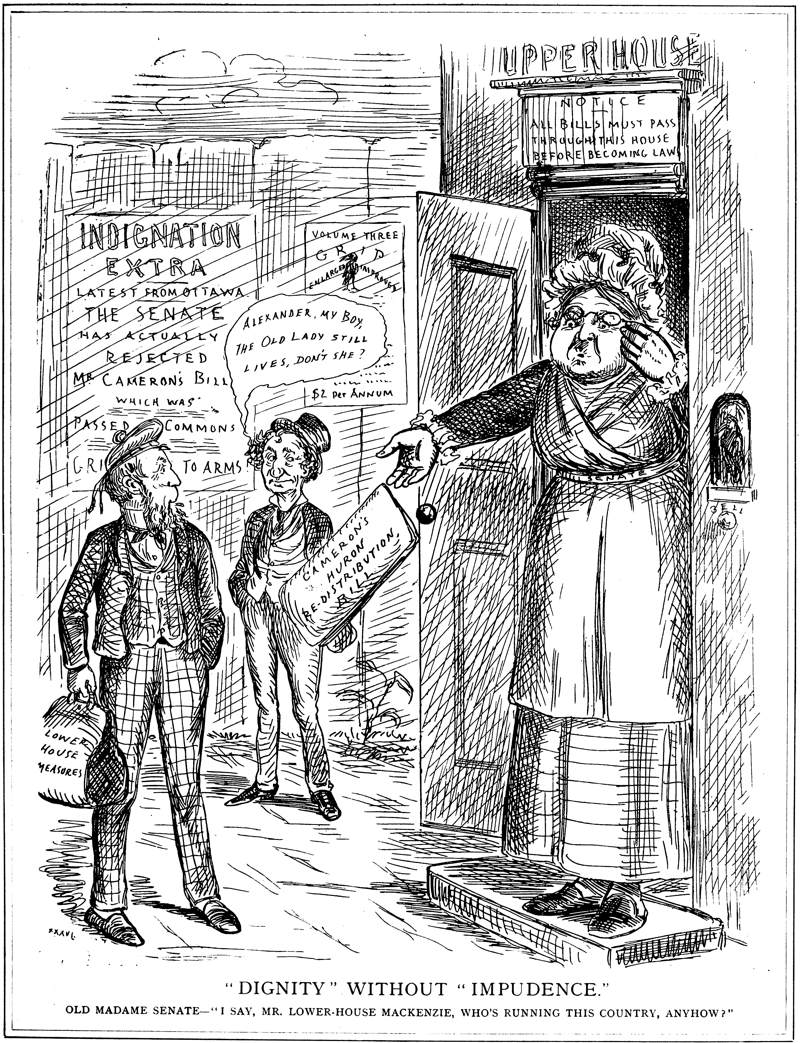 UPPER HOUSE
NOTICE
ALL BILLS MUST PASS
THROUGH THIS HOUSE
BEFORE BECOMING LAW
INDIGNATION
EXTRA
LATEST FROM OTTAWA
THE SENATE
HAS ACTUALLY
REJECTED
MR CAMERON'S BILL
WHICH WAS
PASSED COMMONS
GRI TO ARMS
VOLUME THREE
GRIP
ENLARGED IMPROVED
$2 Per ANNUM
ALEXANDER, MY BOY,
THE OLD LADY STILL
LIVES, DON'T SHE?
CAMERON'S
HURON
RE-DISTRIBUTION
BILL
SENATE
BELL
LOWER
HOUSE
MEASURES
"DIGNITY" WITHOUT "IMPUDENCE."
OLD MADAME SENATE—"I SAY, MR. LOWER-HOUSE MACKENZIE, WHO'S RUNNING THIS COUNTRY, ANYHOW?"